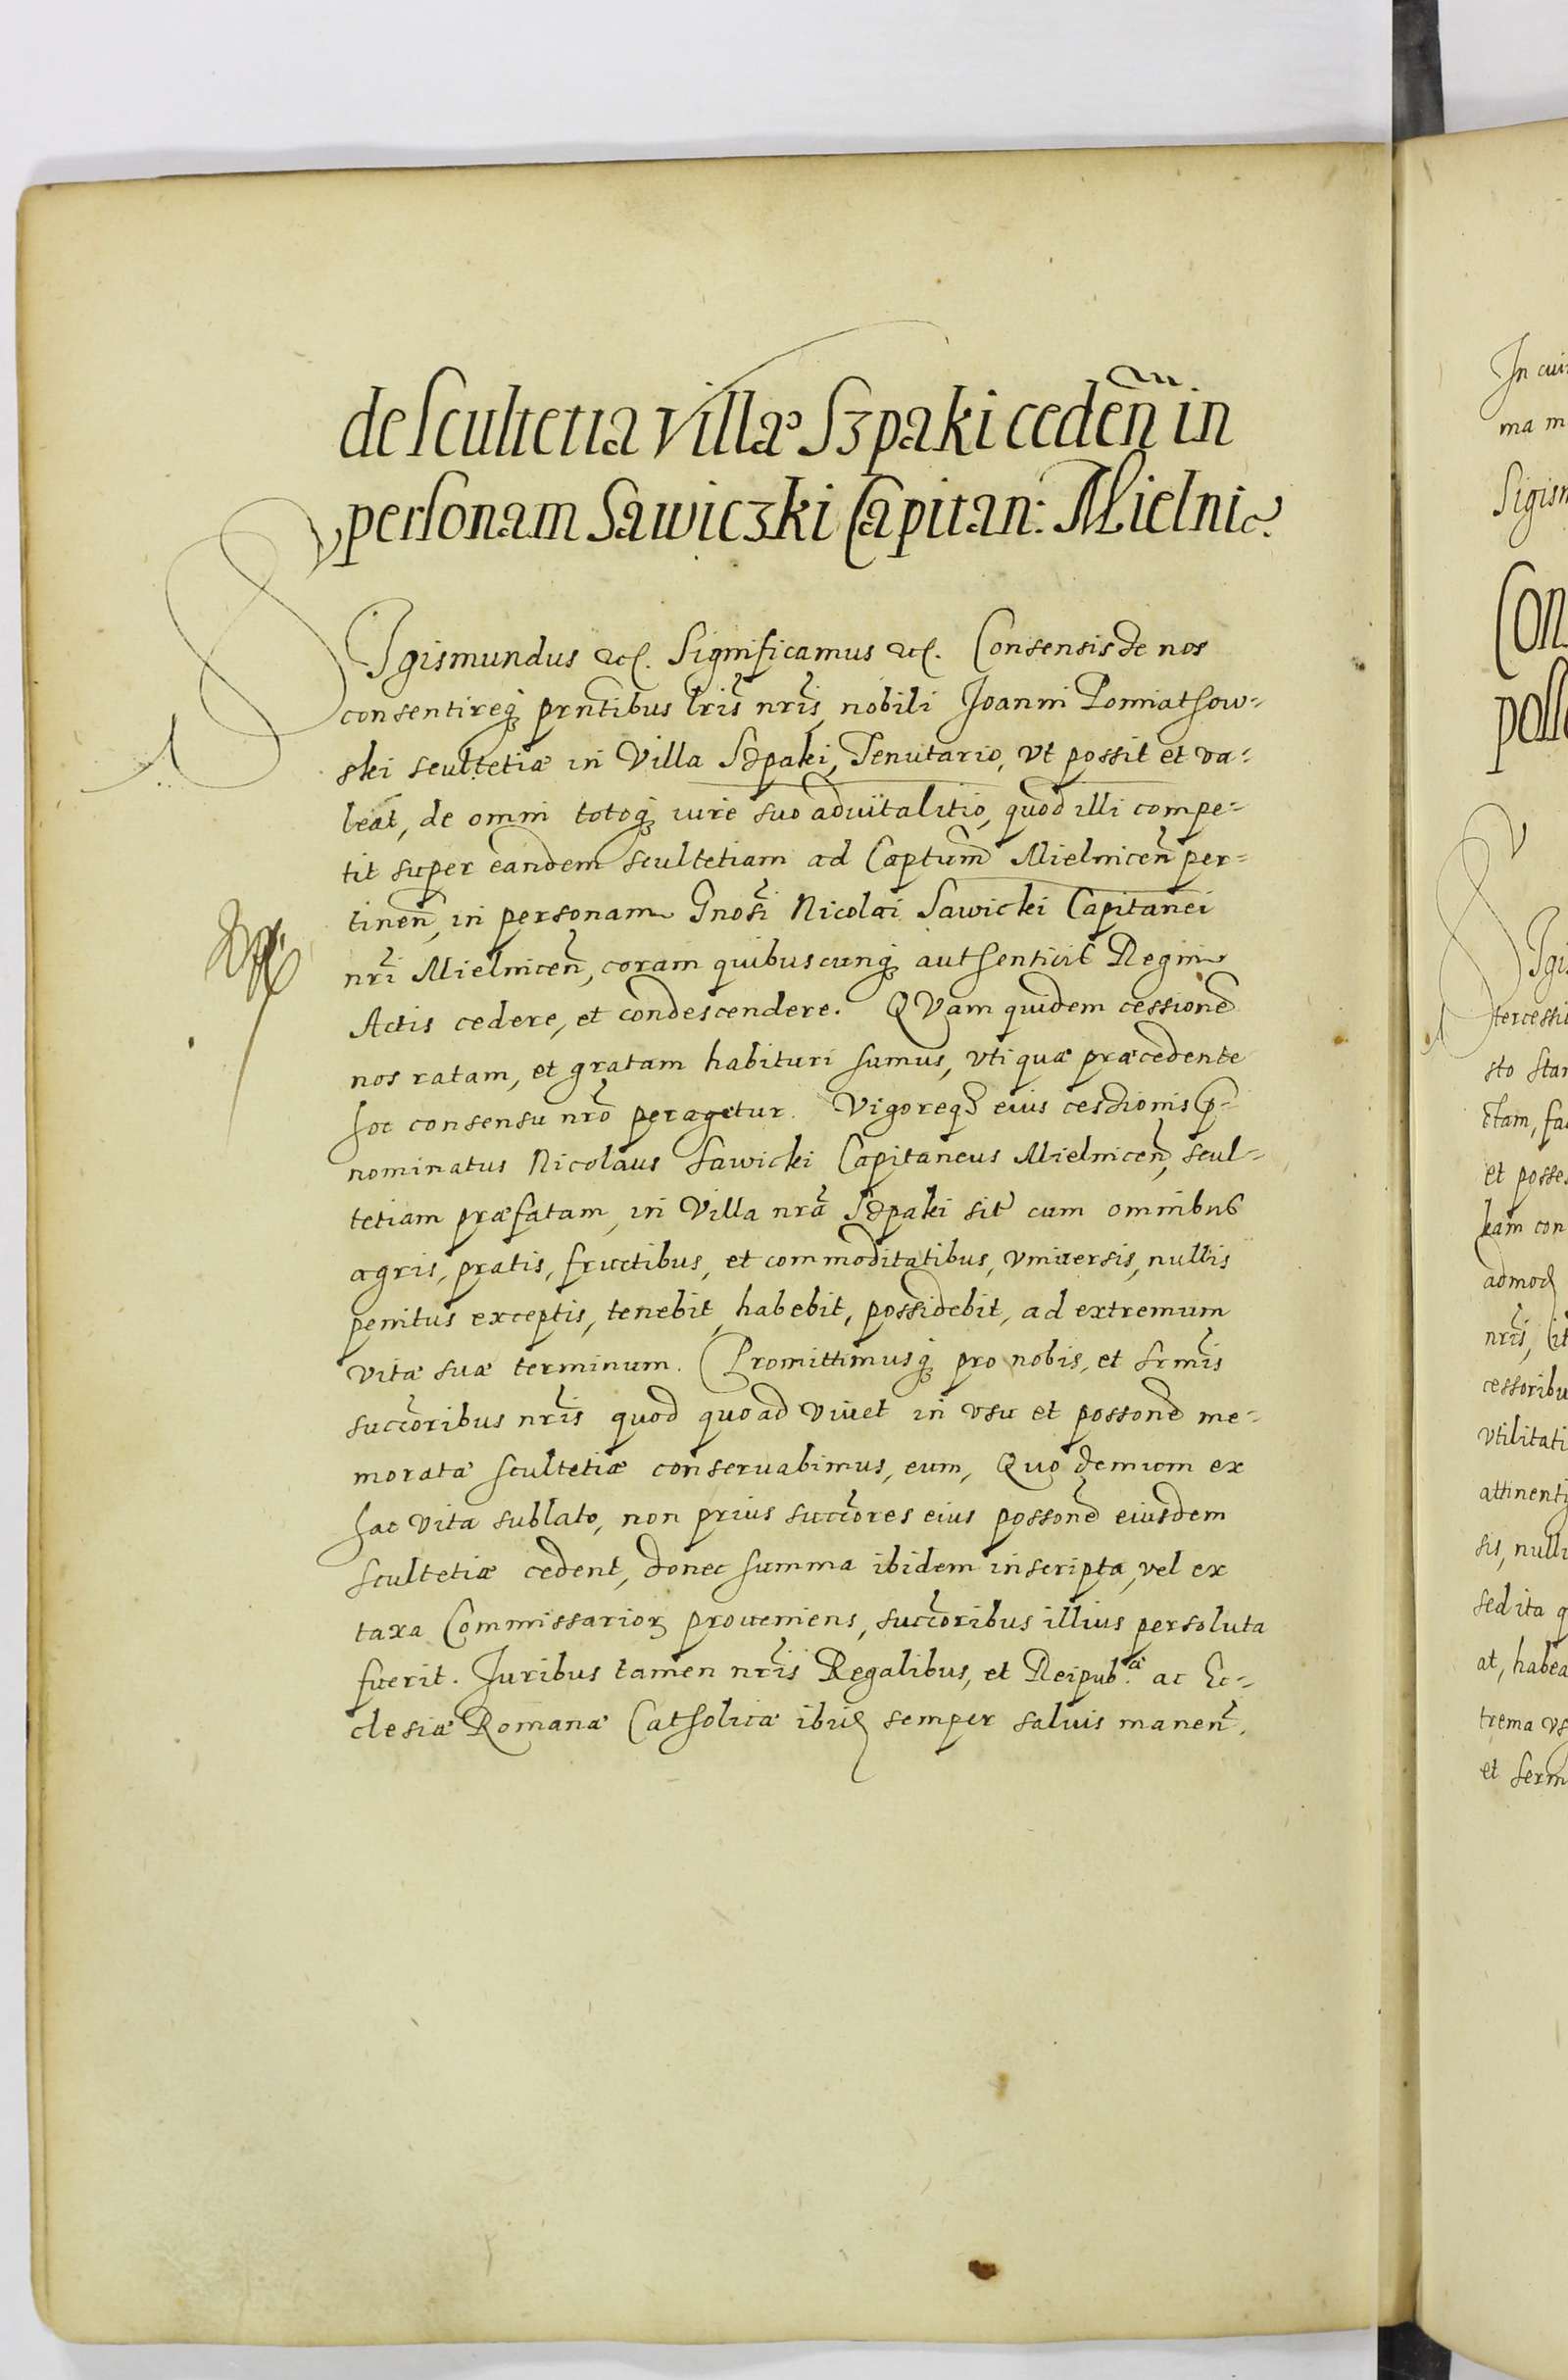 de Scultetia Villæ Szpaki ceden̄ in
personam Sawiczki Capitan: Mielnic.
SIgismundus etc. Significamus etc. Consensisse nos
consentireq; prntibus lris nris, nobili Joanni Poniathow=
ski scultetiæ in Villa Szpaki, Tenutario, vt possit et va=
leat, de omni totoq; iure suo aduitalitio, quod illi compe=
tit super eandem scultetiam ad Captum Mielnicen̄ per=
tinen̄, in personam Gnosi Nicolai Sawicki Capitanei
nri Mielnicen̄, coram quibuscunq; authenticis Regni
Actis cedere, et condescendere. QVam quidem cessionē
nos ratam, et gratam habituri sumus, vti quæ præcedente
hoc consensu nro peragetur. Vigoreq; eius cessionis p̄=
nominatus Nicolaus Sawicki Capitaneus Mielnicen̄, scul=
tetiam præfatam, in Villa nra Szpaki sit̄ cum omnibus
agris, pratis, fructibus, et commoditatibus, vniuersis, nullis
penitus exceptis, tenebit, habebit, possidebit, ad extremum
vitæ suæ terminum. Promittimusq; pro nobis, et srmis
succoribus nris quod quoad viuet in vsu et possone me=
moratæ scultetiæ conseruabimus, eum, Quo demum ex
hac vita sublato, non prius succores eius possone eiusdem
scultetiæ cedent, donec summa ibidem inscripta, vel ex
taxa Commissarioꝝ proueniens, succoribus illius persoluta
fuerit. Juribus tamen nris Regalibus, et Reipub.æ ac Ec=
clesiæ Romanæ Catholicæ ibid semper saluis manen̄.
In cui
ma m
Sigism
Con
poss
Sigi
tercessi
sto sta
ctam, fa
et posse
eam con
admod
nris, lit
cessoribu
vtilitati
attinenti
sis, nulli
sed ita q
at, habea
trema vs
et serm